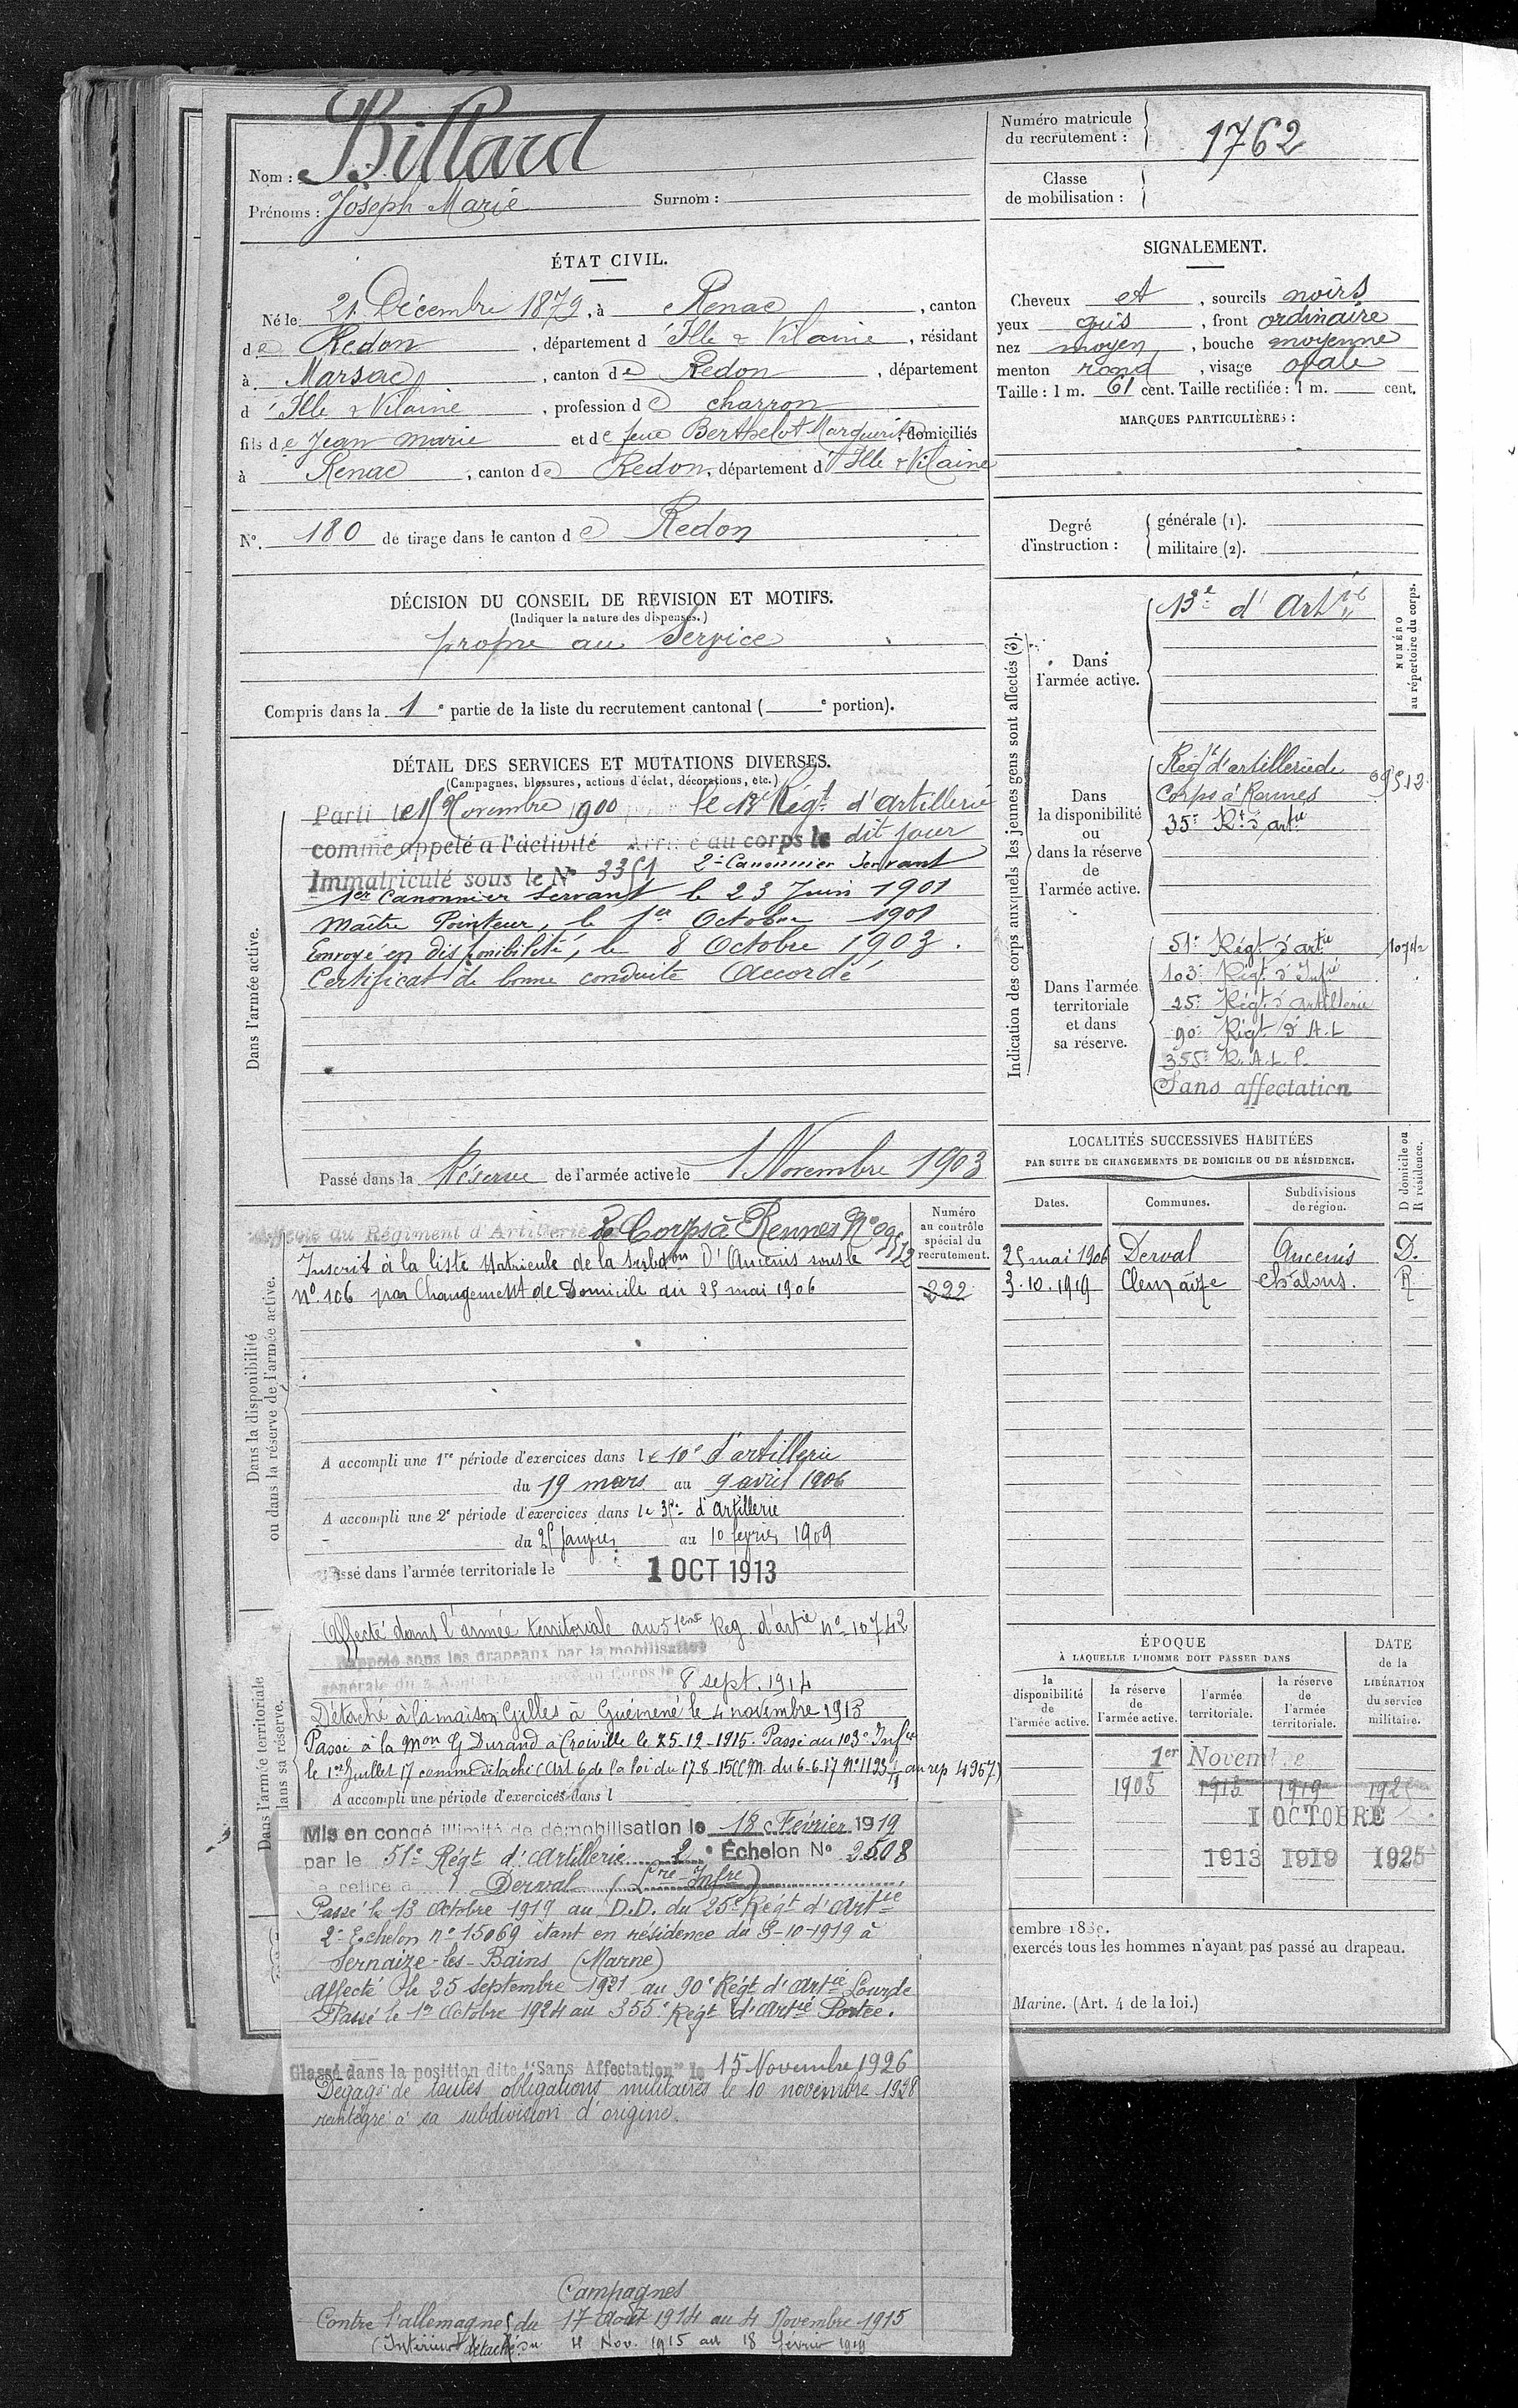 Nom : Billard
Prénoms : Joseph Marie Surnom :
Numéro matricule du recrutement : 1762
Classe de mobilisation :
ÉTAT CIVIL.
Né le 21 Décembre 1879, à Renac, canton
de Redon, département d'Ille & Vilaine, résidant
à Marsac, canton de Redon, département
d'Ille & Vilaine, profession de charron
fils de Jean Marie et de feue Berthelot Marguerite, domiciliés
à Renac, canton de Redon, département d'Ille & Vilaine
N°. 180 de tirage dans le canton de Redon
SIGNALEMENT.
Cheveux et, sourcils noirs
yeux gris, front ordinaire
nez moyen, bouche moyenne
menton rond, visage ovale
Taille : 1 m. 61 cent. Taille rectifiée : 1 m. cent.
MARQUES PARTICULIÈRES :
Degré d'instruction :
générale (1).
militaire (2).
DÉCISION DU CONSEIL DE REVISION ET MOTIFS.
(Indiquer la nature des dispenses.)
propre au Service
Compris dans la 1e partie de la liste du recrutement cantonal ( e portion).
DÉTAIL DES SERVICES ET MUTATIONS DIVERSES.
(Campagnes, blessures, actions d'éclat, décorations, etc.)
Dans l'armée active.
Parti le 15 Novembre 1900 le 13e Régt. d'artillerie
comme appelé à l'activité Arrivé au corps le dit jour
Immatriculé sous le N° 3351 2e Canonnier Servant
1er Canonnier Servant le 23 Juin 1901
Maître Pointeur, le 1er Octobre 1901
Envoyé en disponibilité, le 8 Octobre 1903.
Certificat de bonne conduite Accordé
Passé dans la Réserve de l'armée active le 1 Novembre 1903
Indication des corps auxquels les jeunes gens sont affectés (3).
NUMÉRO au répertoire du corps.
Dans l'armée active.
13e d'Artie
Dans la disponibilité ou dans la réserve de l'armée active.
Régt d'artillerie de
Corps à Rennes
35e Rt d'artie
Dans l'armée territoriale et dans sa réserve.
51e Régt d'artie 10742
103e Régt d'Infie
25e Régt d'Artillerie
90e Régt d'A.L
355e R.A.L.P.
Sans affectation
LOCALITÉS SUCCESSIVES HABITÉES
PAR SUITE DE CHANGEMENTS DE DOMICILE OU DE RÉSIDENCE.
Dates. Communes. Subdivisions de région. D domicile ou R résidence.
25 mai 1906 Derval Ancenis D.
3.10.1919 Chalons. R
Dans la disponibilité ou dans la réserve de l'armée active.
Numéro au contrôle spécial du recrutement.
Affecté au Régiment d'Artillerie de Corps à Rennes N°
Inscrit à la liste Matricule de la subdon d'Ancenis sous le
n° 106 par Changement de Domicile du 25 mai 1906
222
A accompli une 1re période d'exercices dans le 10e d'artillerie
du 19 mars au 9 avril 1906
A accompli une 2e période d'exercices dans le 35e d'Artillerie
du 25 Janvier au 10 février 1909
Passé dans l'armée territoriale le 1 OCT 1913
Dans l'armée territoriale et dans sa réserve.
Affecté dans l'armée territoriale au 51eme Reg. d'artie n° 10742
Rappelé sous les drapeaux par la mobilisation
générale du 2 Août Corps le 8 sept. 1914
Détaché à la maison Gilles à Guéméné le 4 novembre 1915
Passé à la Mon G Durand à le 25-12-1915. Passé au 103e Infie
le 1er Juillet 17 comme détaché (Art 6 de la loi du 17-8-15 CM du 6-6-17 N° au rep 4967)
A accompli une période d'exercices dans l
Mis en congé illimité de démobilisation le 18 Février 1919
par le 51e Régt d'Artillerie 2e Échelon N° 2508
se retire à Derval (Ire Infre)
Passé le 13 Octobre 1919 au D.D. du 25e Régt d'Artie
2e Echelon n° 15069 étant en résidence du 3-10-1919 à
Sermaize-les-Bains (Marne)
Affecté le 25 septembre 1921 au 90e Régt d'Artie Lourde
Passé le 1er Octobre 1924 au 355e Régt d'Artie Portée.
Classé dans la position dite "Sans Affectation" le 15 Novembre 1926
Dégagé de toutes obligations militaires le 10 novembre 1928
réintégré à sa subdivision d'origine.
Campagnes
Contre l'allemagne du 17 Août 1914 au 4 Novembre 1915
(Intérieur détaché) du 4 Nov. 1915 au 18 février 1919
ÉPOQUE
À LAQUELLE L'HOMME DOIT PASSER DANS
la disponibilité de l'armée active. la réserve de l'armée active. l'armée territoriale. la réserve de l'armée territoriale.
DATE de la LIBÉRATION du service militaire.
1er Novembre
1903 1913 1919 1925
1 OCTOBRE
1913 1919 1925
exercés tous les hommes n'ayant pas passé au drapeau.
Marine. (Art. 4 de la loi.)